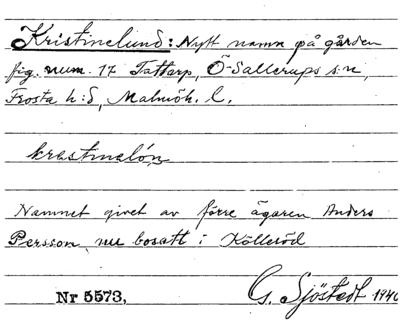 Kristinelund: Nytt namn på gården
fig. num. 17 Tattarp, Ö-Sallerups sn,
Frosta h:d, Malmöh. l.
krastinelón
Namnet givet av förre ägaren Anders
Persson, nu bosatt i Kölleröd
Nr 5573, G. Sjöstedt 1940